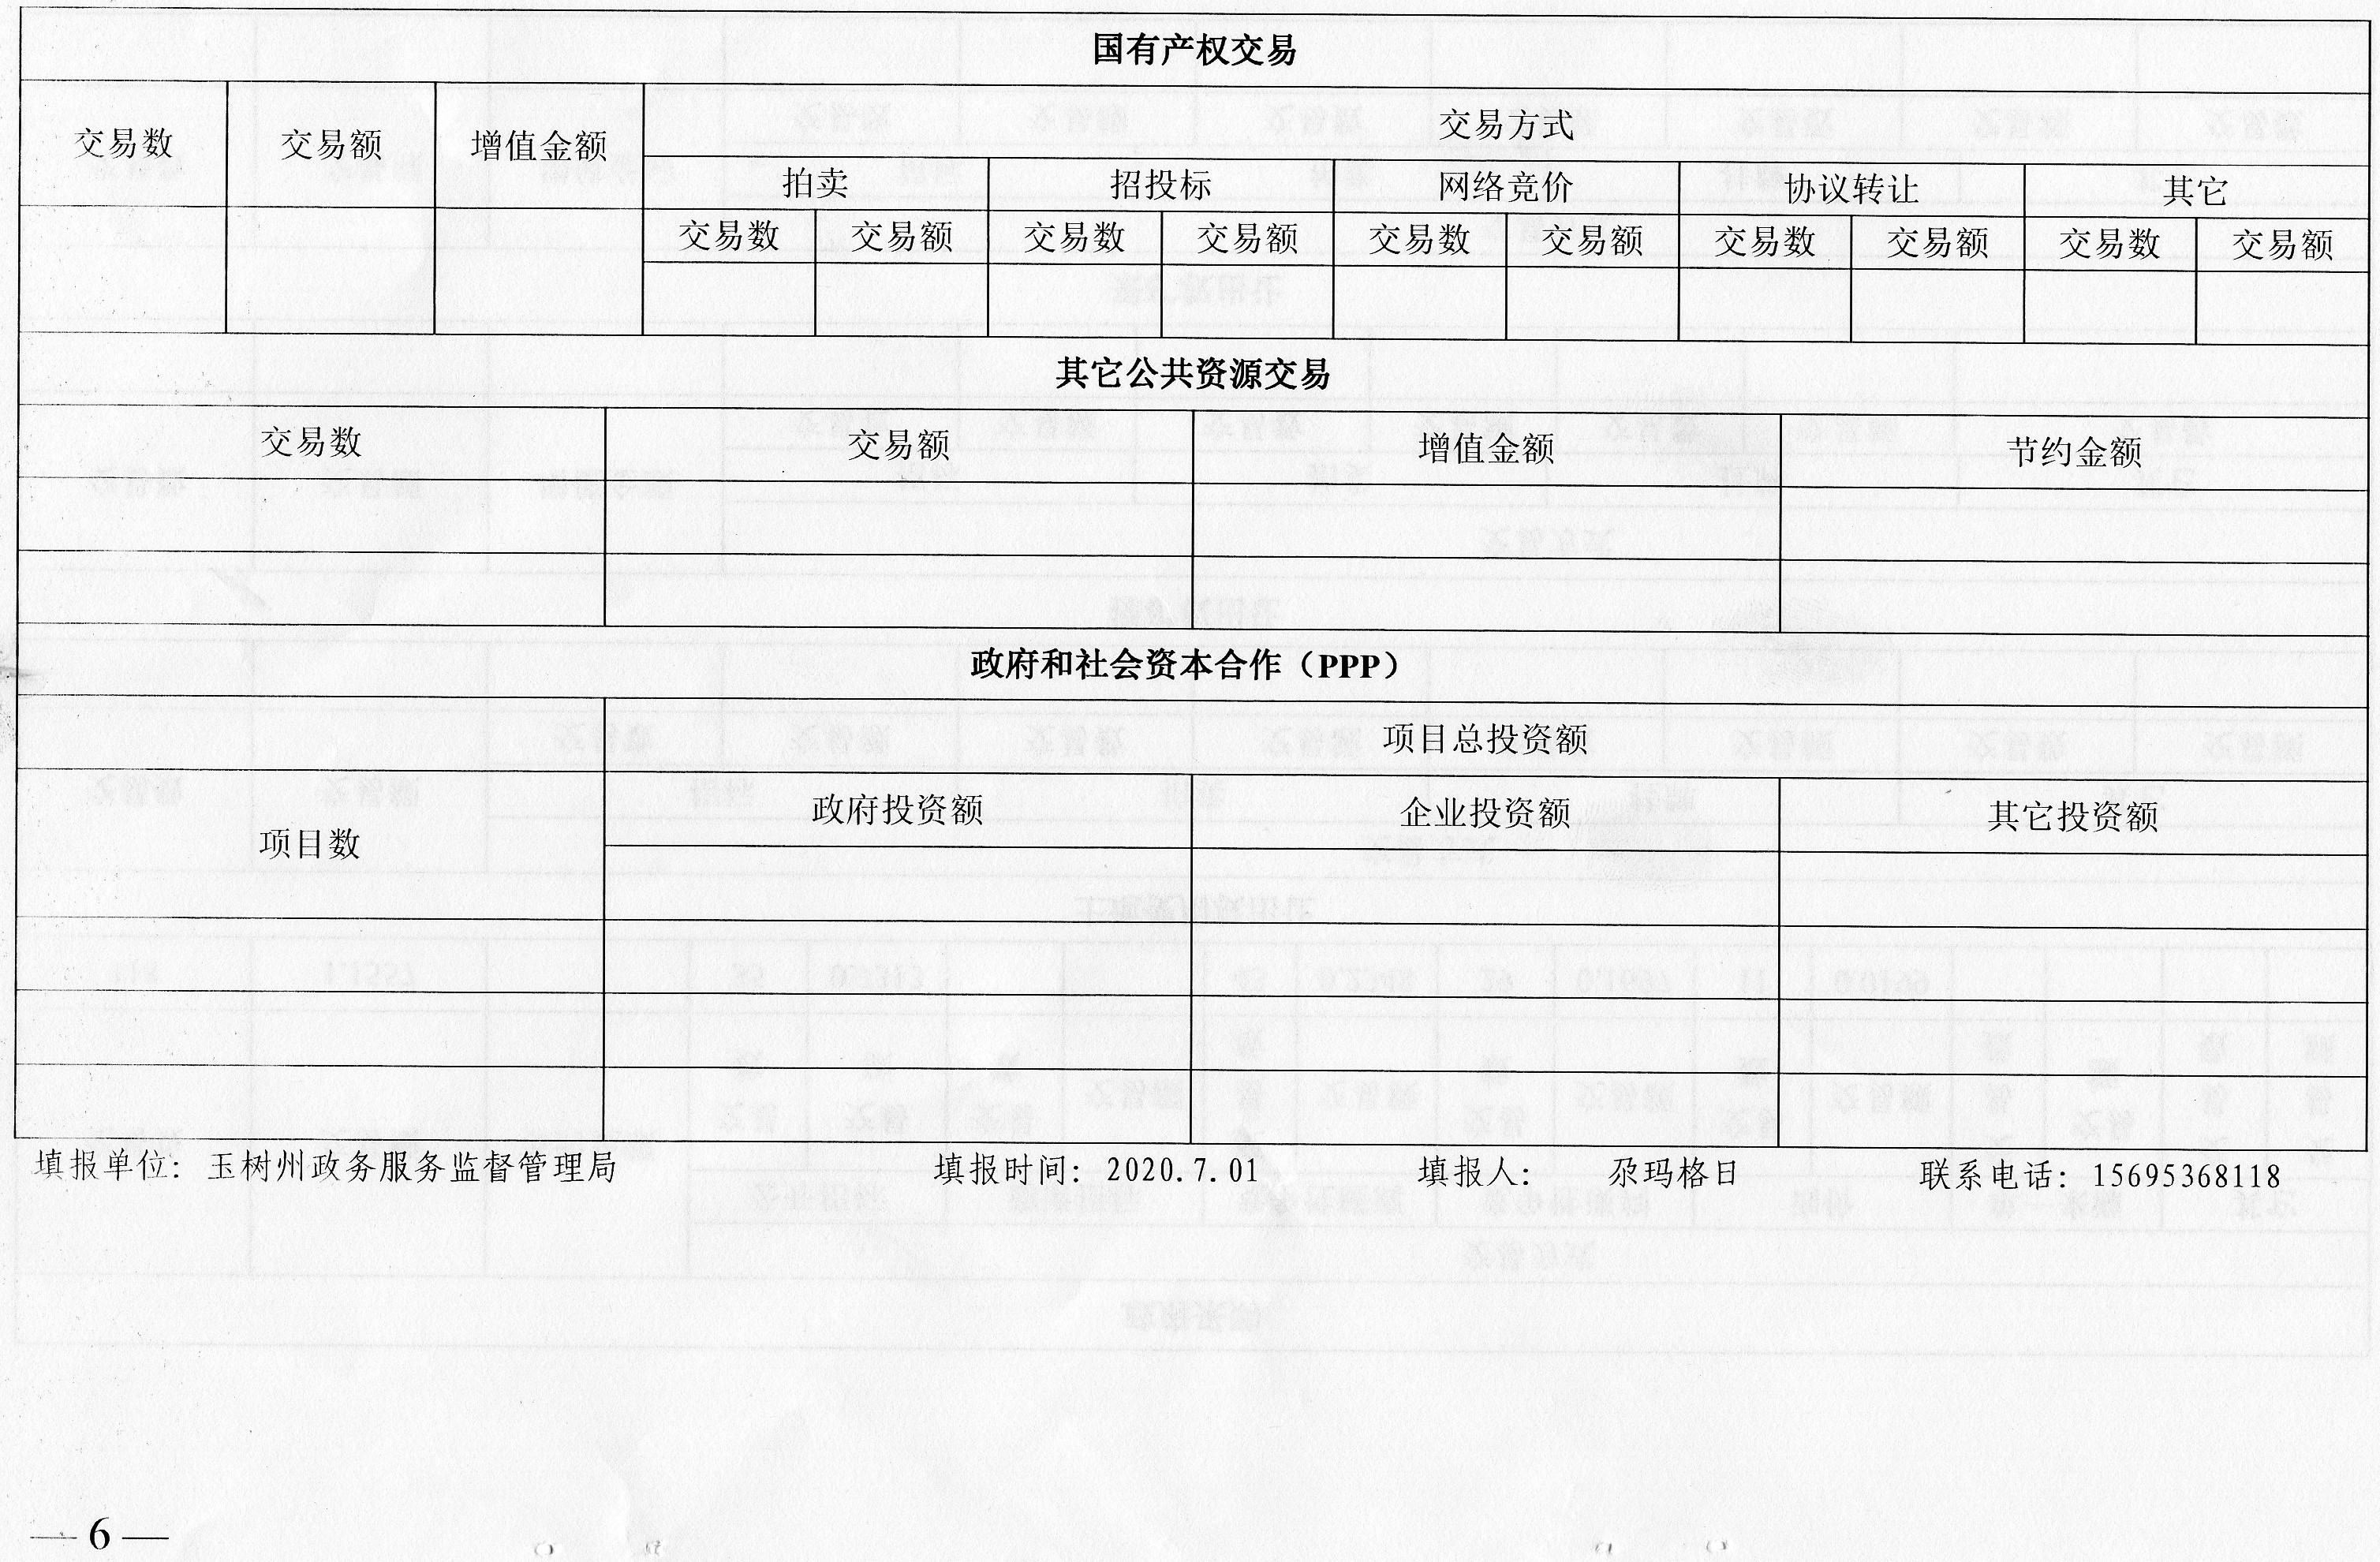 国有产权交易
交易数 交易额 增值金额 交易方式
拍卖 招投标 网络竞价 协议转让 其它
交易数 交易额 交易数 交易额 交易数 交易额 交易数 交易额 交易数 交易额
其它公共资源交易
交易数 交易额 增值金额 节约金额
政府和社会资本合作（PPP）
项目总投资额
项目数 政府投资额 企业投资额 其它投资额
填报单位：玉树州政务服务监督管理局 填报时间：2020.7.01 填报人： 尕玛格日 联系电话：15695368118
— 6 —